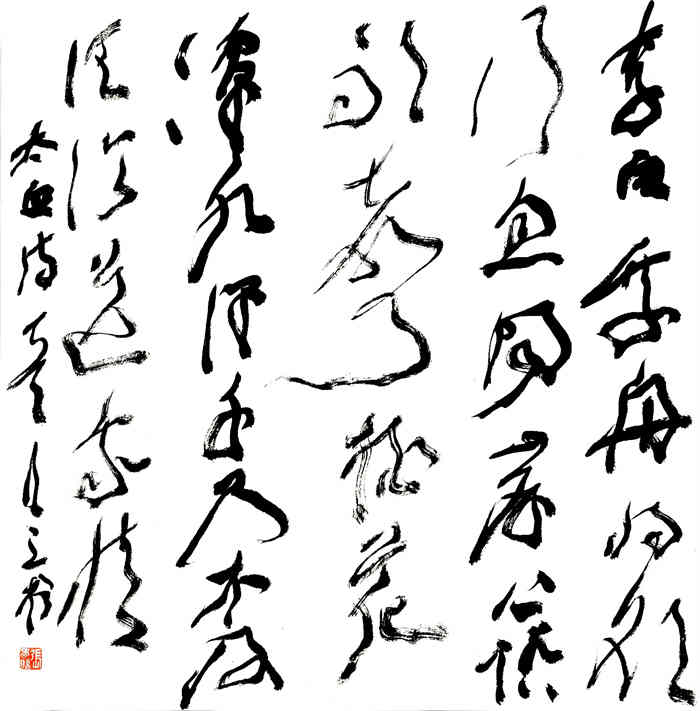 李白乘舟將欲
行忽聞岸上踏
歌聲桃花
潭水深千尺不及
汪倫送我情
太白詩